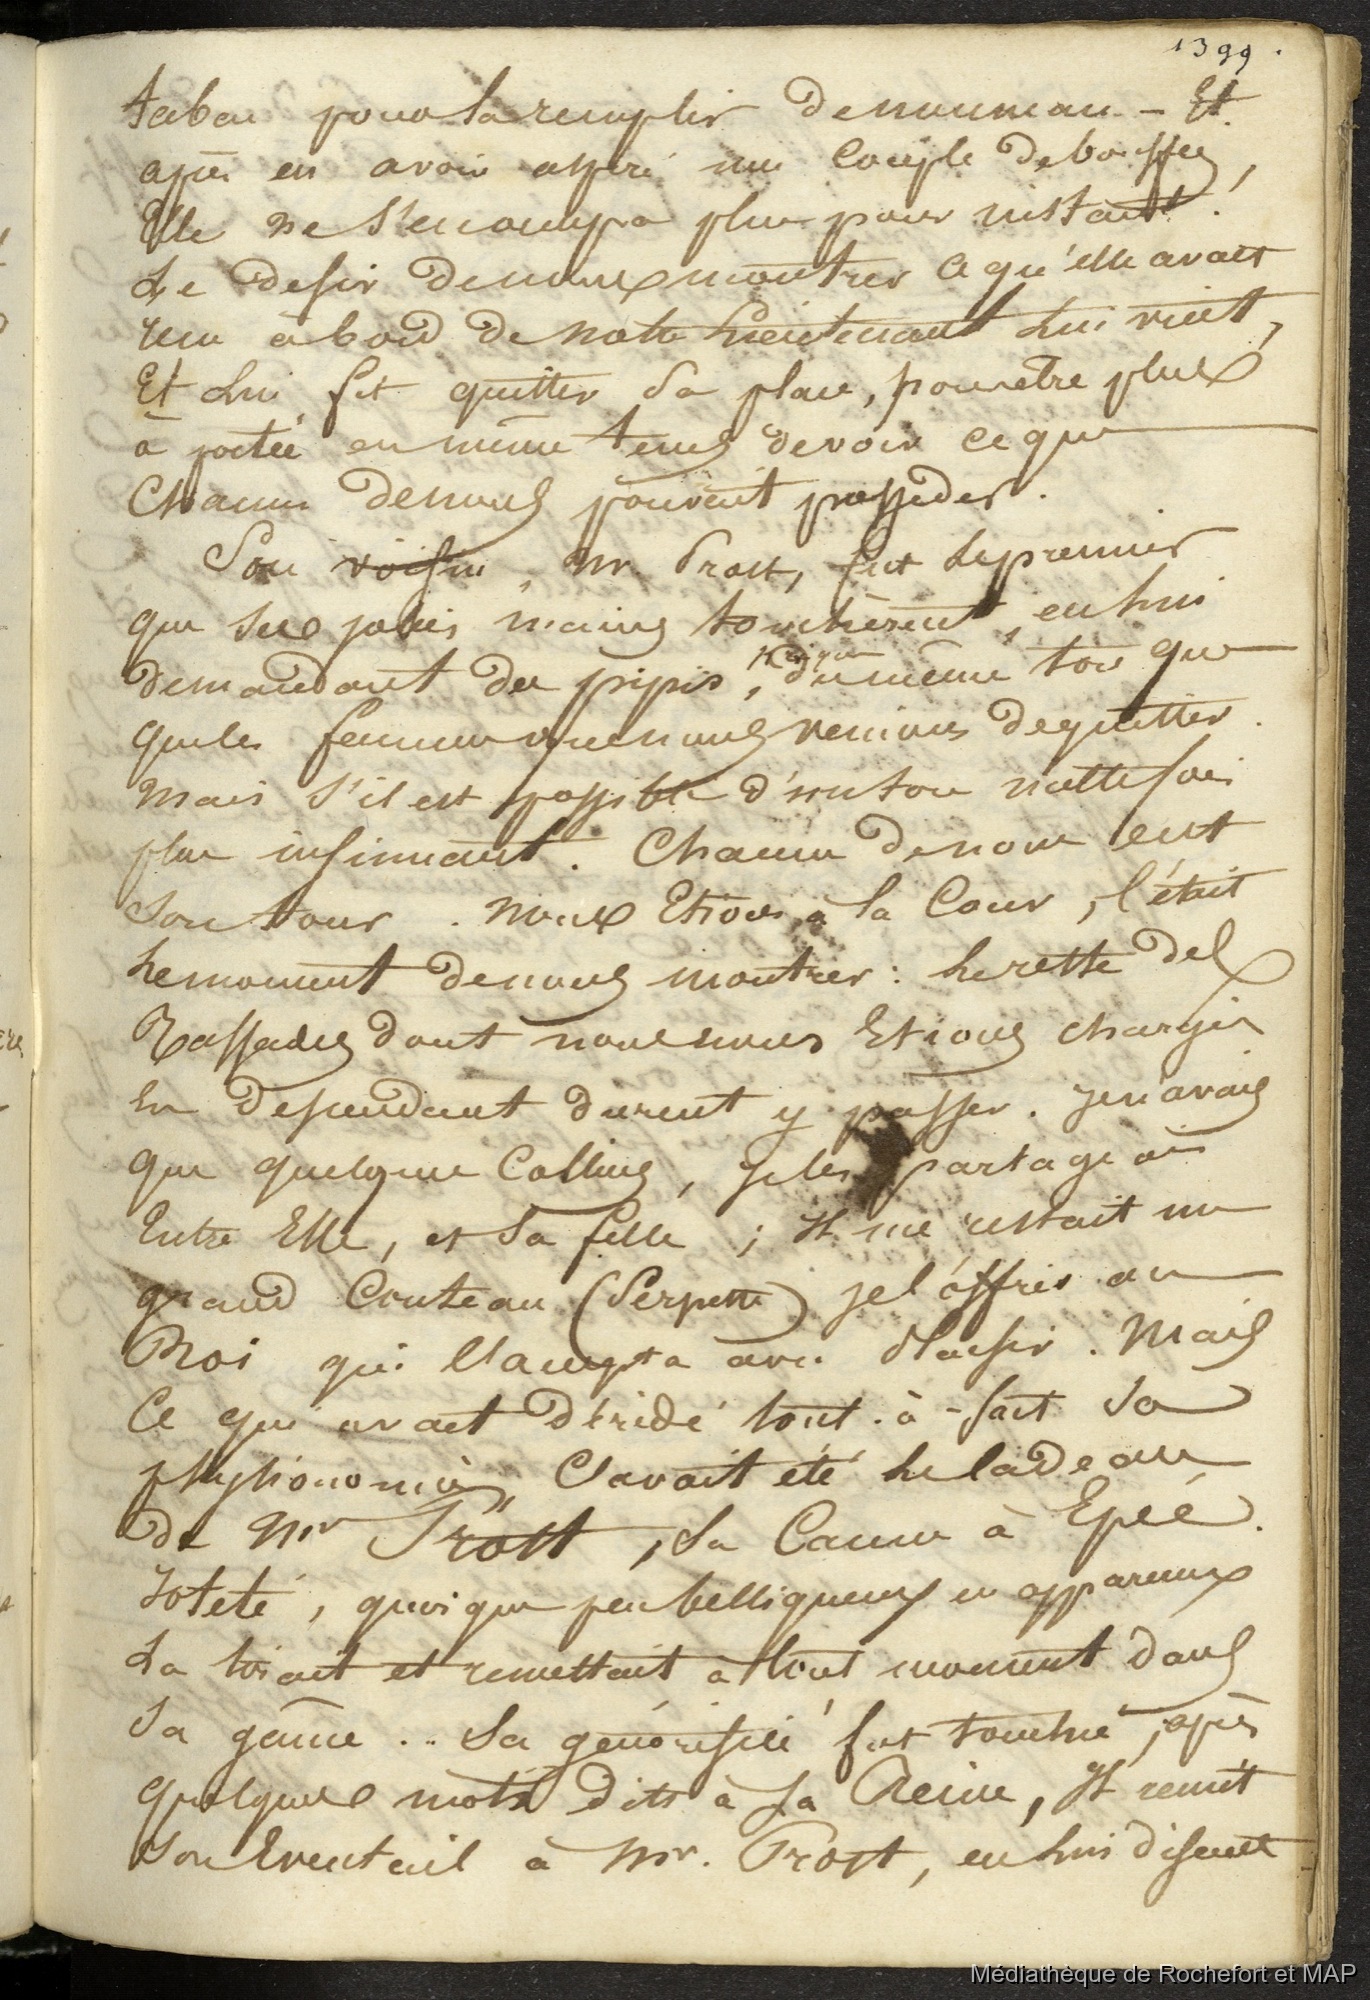 1399.
tabac pour la remplir de nouveau - Et
après en avoir aspiré une couple de bouffés,
Elle ne s'en occupa plus pour l'instant.
Le desir de nous montrer ce qu'elle avait
reçu à bord de notre Lieutenant lui vint,
Et lui fit quitter sa place, pour être plus
à portée en même tems de voir ce que
Chacun de nous pouvait posseder.
Son voisin, Mr. Prost, fut le premier
que ses jolies mains touchèrent, en lui
demandant des pipis, du même ton que
que les femmes que nous venions de quitter.
Mais s'il est possible d'un ton mille fois
plus insinuant. Chacun de nous eut
son tour. Nous Etions à la Cour, c'était
le moment de nous montrer : le reste des
Rassades dont nous nous Etions chargés
en descendant durent y passer. Je n'avais
que quelques Colliers, je les partageais
Entre Elle, et sa fille ; Il me restait un
grand Couteau (Serpette) je l'offris au
Roi qui l'accepta avec plaisir. Mais
Ce qui avait déridé tout-à-fait sa
physionomie, C'avait été le cadeau
de Mr Prost, sa Canne à Epée.
Toteté, quoique peu belliqueux en apparence
La tirait et remettait à tout moment dans
sa gaîne .. Sa générosité fut touchée, après
quelques mots dits à la Reine, Il remit
son Eventail à Mr. Prost, en lui disant
Médiathèque de Rochefort et MAP